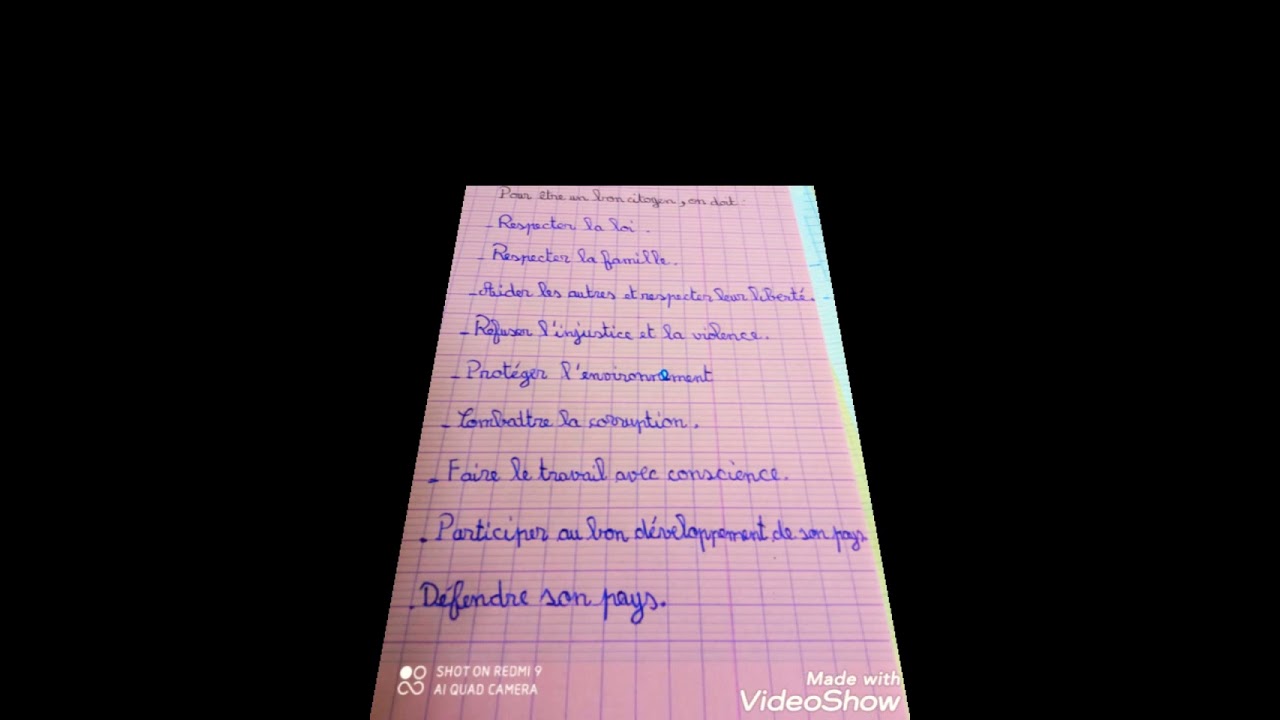 Pour être un bon citoyen, on doit :
- Respecter la loi .
- Respecter la famille.
- Aider les autres et respecter leur liberté.
- Refuser l'injustice et la violence.
- Protéger l'environnement
- Combattre la corruption.
- Faire le travail avec conscience.
- Participer au bon développement de son pays
. Défendre son pays.
SHOT ON REDMI 9
AI QUAD CAMERA
Made with
VideoShow